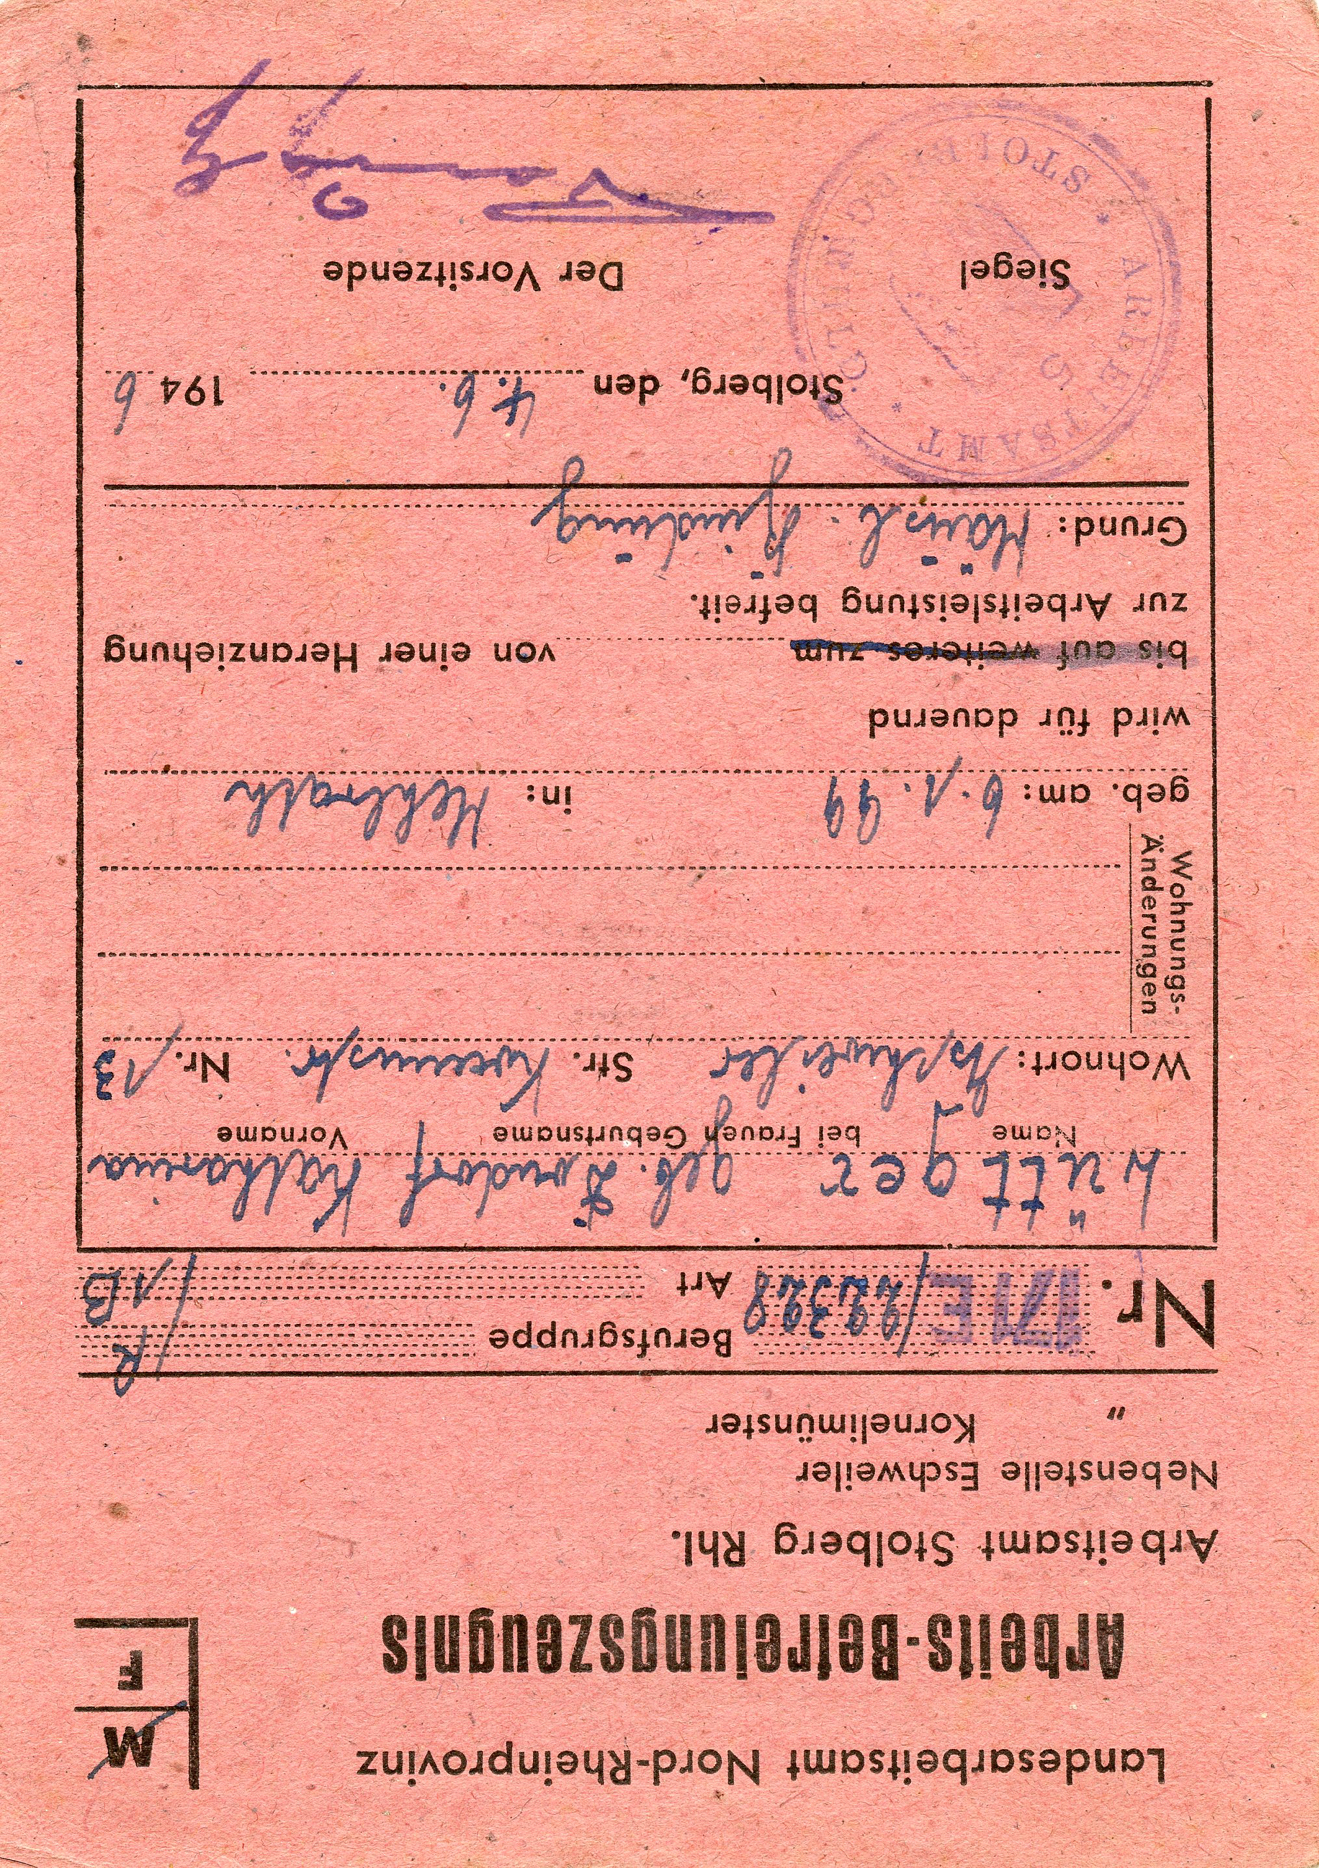 Landesarbeitsamt Nord-Rheinprovinz
M
F
Arbeits-Befreiungszeugnis
Arbeitsamt Stolberg Rhl.
Nebenstelle Eschweiler
" Kornelimünster
Nr. 171E/22328 Berufsgruppe R
Art 1B
Lüttger geb. Dondorf Katharina
Name bei Frauen Geburtsname Vorname
Wohnort: Eschweiler Str. Nr. 13
Wohnungs-
Änderungen
geb. am: 6.1.99 in: Mehlrath
wird für dauernd
bis auf weiteres zum von einer Heranziehung
zur Arbeitsleistung befreit.
Grund: Häusl. Bindung
Stolberg, den 4.6. 1946
Siegel Der Vorsitzende
* ARBEITSAMT * STOLBERG